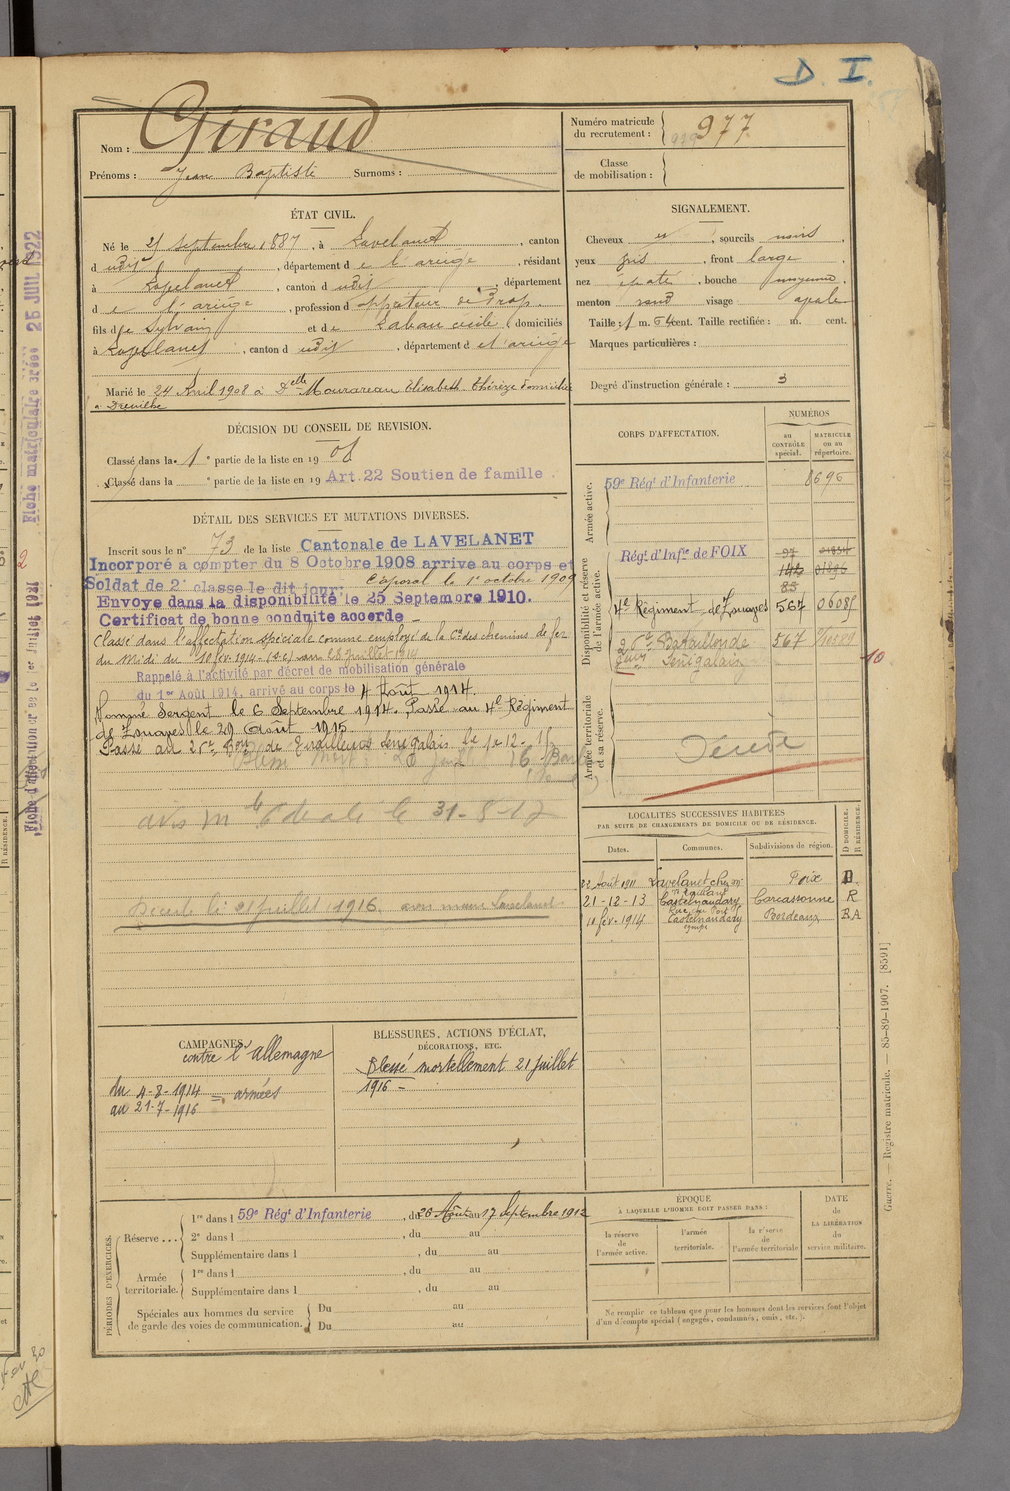 D. I.
Nom : Giraud
Prénoms : Jean Baptiste Surnoms :
Numéro matricule du recrutement : 977
Classe de mobilisation :
ÉTAT CIVIL.
Né le septembre 1887, à Lavelanet, canton
dudit, département de l'ariège, résidant
à Lavelanet, canton dudit, département
de l'ariège, profession d
fils de Sylvain et de Laban cécile, domiciliés
à Lavelanet, canton dudit, département de l'ariège
Marié le 24 Avril 1908 à Delle Mourareau Elisabeth Thérèze domiciliée
à Dreuilhe
SIGNALEMENT.
Cheveux , sourcils noirs,
yeux gris, front large,
nez épaté, bouche moyenne,
menton rond visage ovale
Taille : 1 m. 64 cent. Taille rectifiée : m. cent.
Marques particulières :
Degré d'instruction générale : 3
DÉCISION DU CONSEIL DE REVISION.
Classé dans la 1e partie de la liste en 1908
Classé dans la e partie de la liste en 19 Art. 22 Soutien de famille.
DÉTAIL DES SERVICES ET MUTATIONS DIVERSES.
Inscrit sous le n° 73 de la liste Cantonale de LAVELANET
Incorporé à compter du 8 Octobre 1908 arrive au corps et
Soldat de 2e classe le dit jour: Caporal le 1e octobre 1909
Envoye dans la disponibilité le 25 Septemore 1910.
Certificat de bonne conduite accorde
Classé dans l'affectation spéciale comme employé de la Cie des chemins de fer
du Midi du 10 fév. 1914 - 28 juillet 1914
Rappelé à l'activité par décret de mobilisation générale
du 1er Août 1914, arrivé au corps le 4 Août 1914.
Nommé Sergent le 6 Septembre 1914. Passé au 4e Régiment
de Zouaves le 29 Août 1915
Passé au 26e Bon de Tirailleurs Sénégalais le 1e 12-15
avis m le 31-8-17
Décédé le 21 juillet 1916. avis maire Lavelanet
CORPS D'AFFECTATION.
NUMÉROS
au CONTRÔLE spécial.
MATRICULE ou au répertoire.
Armée active.
59e Régt d'Infanterie 8696
Disponibilité et réserve de l'armée active.
Régt d'Infie de FOIX 97
142
85
4e Régiment de Zouaves 567 06085
26e Bataillon de 567
Tirrs Sénégalais
10
Armée territoriale et sa réserve.
LOCALITÉS SUCCESSIVES HABITÉES
PAR SUITE DE CHANGEMENTS DE DOMICILE OU DE RÉSIDENCE.
Dates. Communes. Subdivisions de région. D DOMICILE. R RÉSIDENCE.
22 Août 1911 Lavelanet chez Mr Foix D.
21-12-13 Castelnaudary Carcassonne R
Rue du Port
10 fév. 1914 Castelnaudary Bordeaux B.A
CAMPAGNES.
contre l'allemagne
du 4-8-1914
au 21-7-1916 = armées
BLESSURES, ACTIONS D'ÉCLAT,
DÉCORATIONS, ETC.
Blessé mortellement 21 juillet
1916 -
PÉRIODES D'EXERCICES.
Réserve ...
1re dans l 59e Régt d'Infanterie, du 26 Août au 17 Septembre 1912
2e dans l , du au
Supplémentaire dans l , du au
Armée territoriale.
1re dans l , du au
Supplémentaire dans l , du au
Spéciales aux hommes du service de garde des voies de communication.
Du au
Du au
ÉPOQUE
À LAQUELLE L'HOMME DOIT PASSER DANS :
la réserve de l'armée active.
l'armée territoriale.
la réserve de l'armée territoriale
DATE de LA LIBÉRATION du service militaire.
Ne remplir ce tableau que pour les hommes dont les services font l'objet
d'un décompte spécial (engagés, condamnés, omis, etc.).
Guerre. — Registre matricule. 85-89-1907. [8591]
Fiche matriculaire créée 25 JUIL 1922